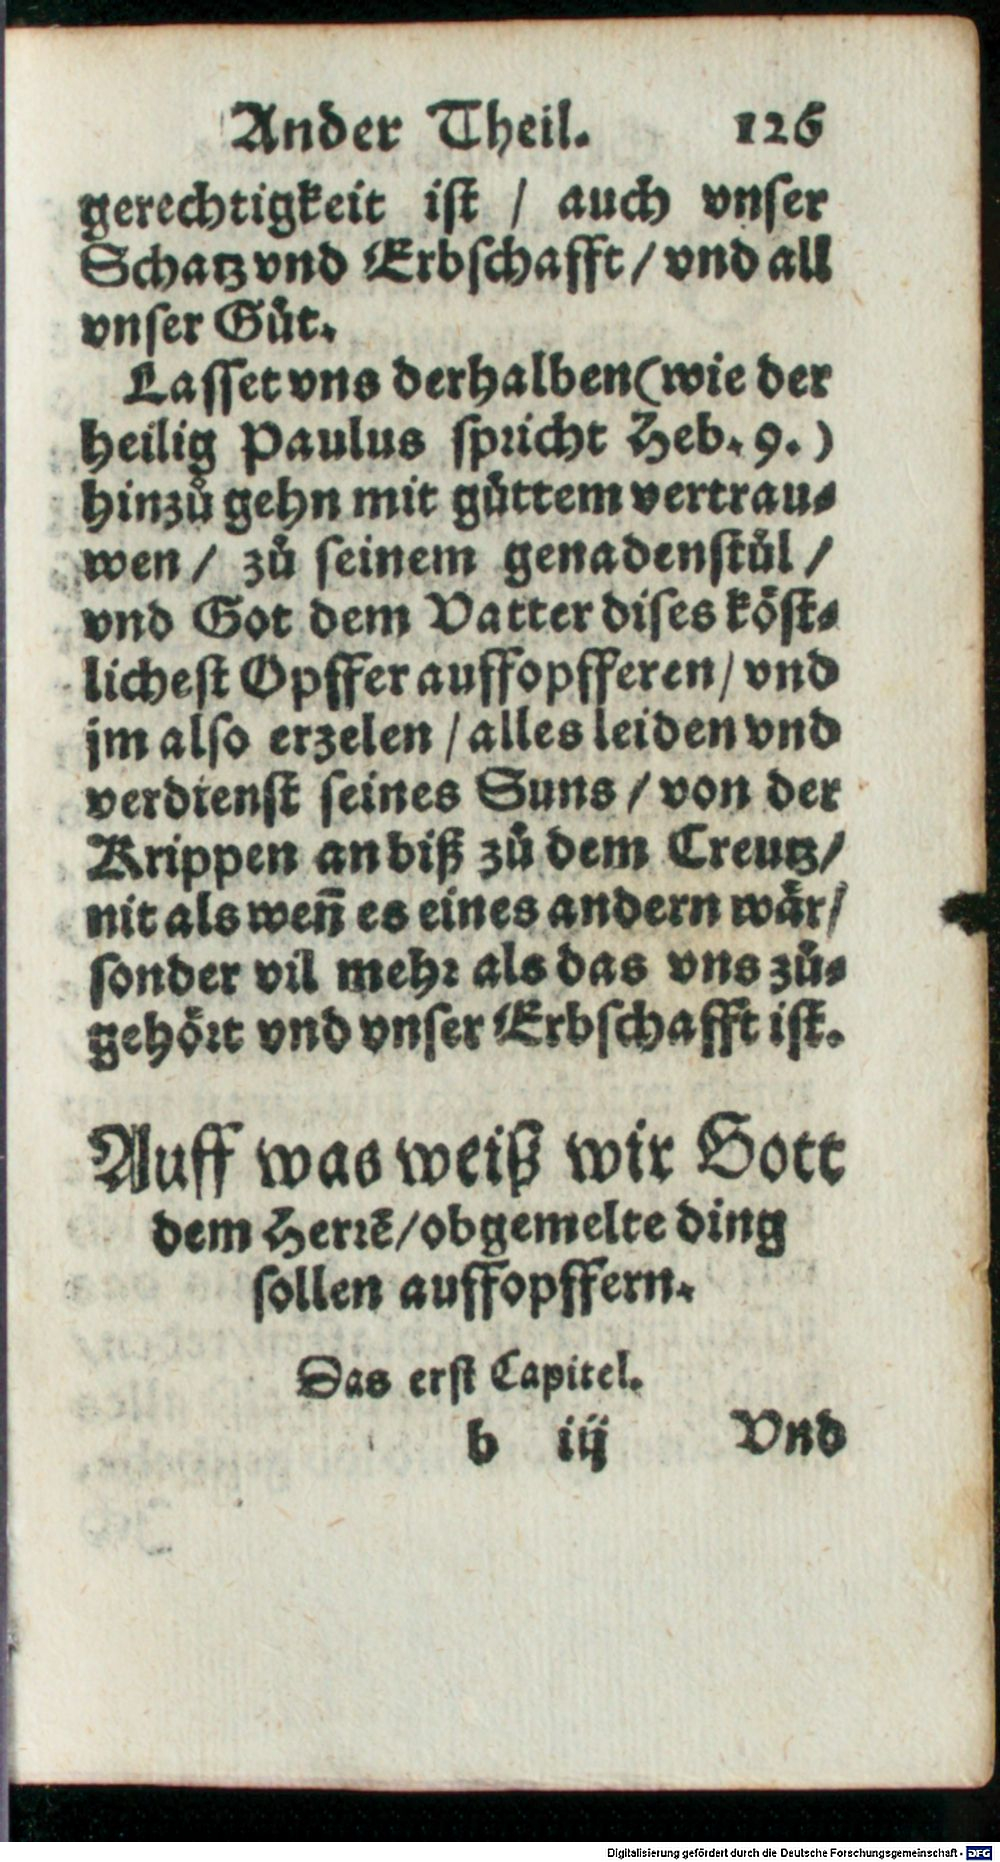 Ander Theil. 126
gerechtigkeit ist / auch vnser
Schatz vnd Erbschafft / vnd all
vnser Gůt.
Lasset vns derhalben (wie der
heilig Paulus spricht Heb. 9.)
hinzů gehn mit gůttem vertrau⸗
wen / zů seinem genadenstůl /
vnd Got dem Vatter dises köst⸗
lichest Opffer auffopfferen / vnd
jm also erzelen / alles leiden vnd
verdienst seines Suns / von der
Krippen an biß zů dem Creutz /
nit als weñ es eines andern wår /
sonder vil mehr als das vns zů⸗
gehört vnd vnser Erbschafft ist.
Auff was weiß wir Gott
dem Herrẽ / obgemelte ding
sollen auffopffern.
Das erst Capitel.
b iij Vnd
Digitalisierung gefördert durch die Deutsche Forschungsgemeinschaft - DFG